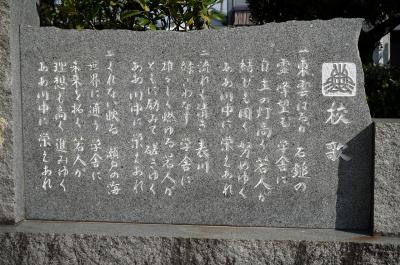 校歌
一東雲はるか 石鎚の
霊峰望む 学舎に
自主の灯高く 若人が
結びも固く 努めゆく
ああ川中に 栄えあれ
二流れも清き 表川
緑いわなす 学舎に
雄々しく燃ゆる 若人が
ともに励みて 磋きゆく
ああ川中に 栄えあれ
三くれない映る 瀬戸の海
世界に通う 学舎に
未来を拓く 若人が
理想も高く 進みゆく
ああ川中に 栄えあれ